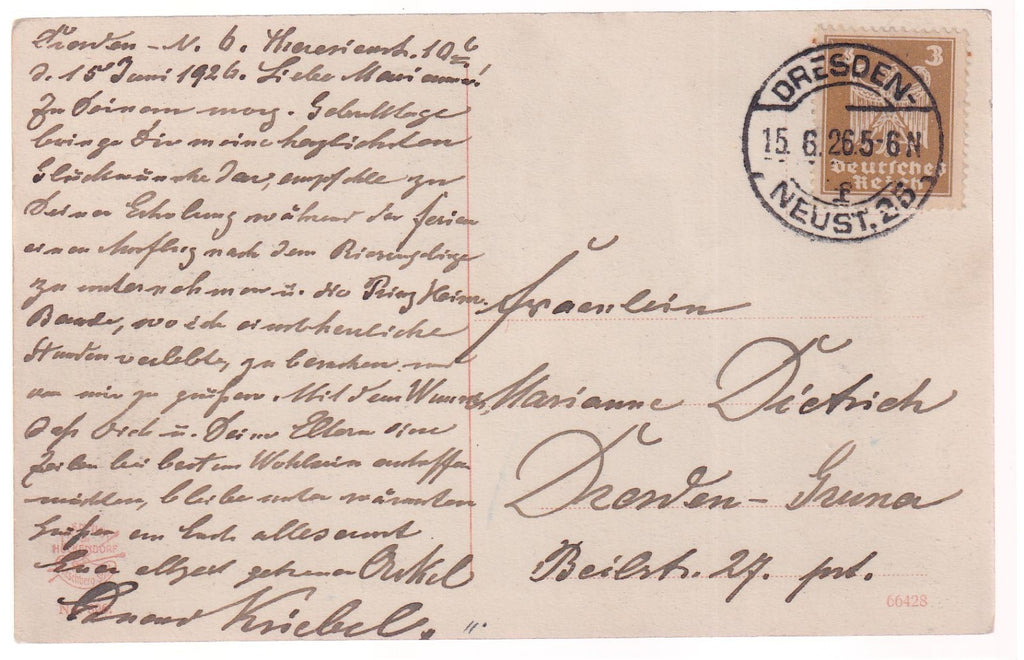 Dresden - N. 6. Theresienstr. 10 c
d. 15 Juni 1926. Liebe Marianne!
Zu Deinem morg. Geburtstage
bringe Dir meine herzlichsten
Glückwünsche dar, empfehle zu
Deiner Erholung während der Ferien
einen Ausflug nach dem Riesengebirge
zu unternehmen u. die Prinz Heinr.
Baude, wo ich einst herrliche
Stunden verlebte, zu besuchen und
von mir zu grüßen. Mit dem Wunsch,
daß Dich u. Deine Eltern diese
Zeilen bei bestem Wohlsein antreffen
möchten, bleibe unter wärmsten
Grüßen an Euch allesamt
Euer allzeit getreuer Onkel
Kriebel.
3
Deutsches
Reich
DRESDEN-
15. 6. 26. 5-6 N
f
NEUST. 25
Fraeulein
Marianne Dietrich
Dresden - Gruna
Beilstr. 27. prt.
66428